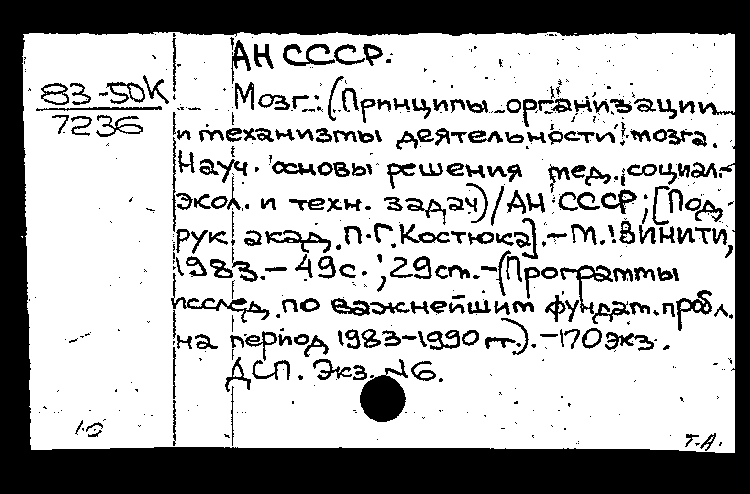 АН СССР.
83-50К
7236
Мозг: (Принципы организации
и механизмы деятельности мозга.
Науч. основы решения мед., социал.-
экол. и техн. задач) / АН СССР; [Под
рук. акад. П.Г. Костюка]. - М.: ВИНИТИ,
1983. - 49 с.; 29 см. - (Программы
исслед. по важнейшим фундам. пробл.
на период 1983-1990 гг.). - 170 экз.
ДСП. Экз. N6.
10
Т.А.